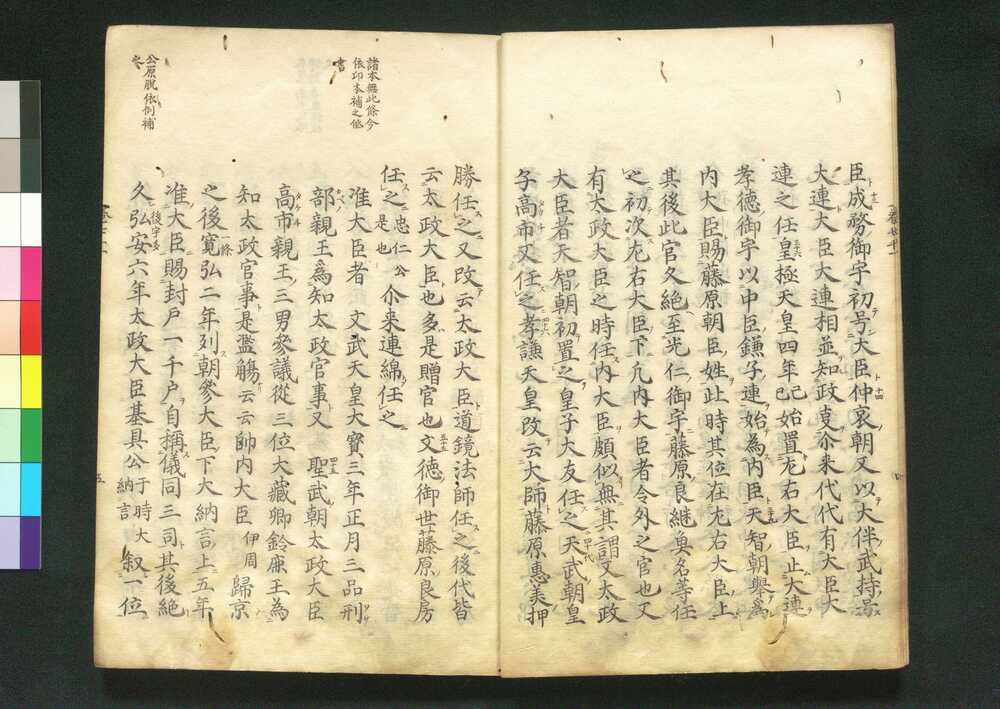 臣成務御宇初号大臣仲哀朝又以大伴武持為
大連大臣大連相並知政事尒来代代有大臣大
連之任皇極天皇四年乙巳始置左右大臣止大連
孝徳御宇以中臣鎌子連始為内臣天智朝舉為
内大臣賜藤原朝臣姓此時其位在左右大臣上
其後此官久絶至光仁御宇藤原良継奥名等任
之初次左右大臣下凡内大臣者令外之官也又
有太政大臣之時任内大臣頗似無其謂又太政
大臣者天智朝初置之皇子大友任之天武朝皇
子高市又任之孝謙天皇改云大師藤原惠美押
勝任之又改云太政大臣道鏡法師任之後代皆
云太政大臣也多是贈官也文徳御世藤原良房
任之忠仁公是也尒来連綿任之
准大臣者文武天皇大寶三年正月三品刑
部親王為知太政官事又聖武朝太政大臣
高市親王三男參議從三位大藏卿鈴鹿王為
知太政官事是濫觴云云帥内大臣伊周歸京
之後寛弘二年列朝參大臣下大納言上五年
准大臣賜封戸一千戸自稱儀同三司其後絶
久弘安六年太政大臣基具公于時大納言叙一位
諸本無此條今
依印本補之他
書
公原脱依例補